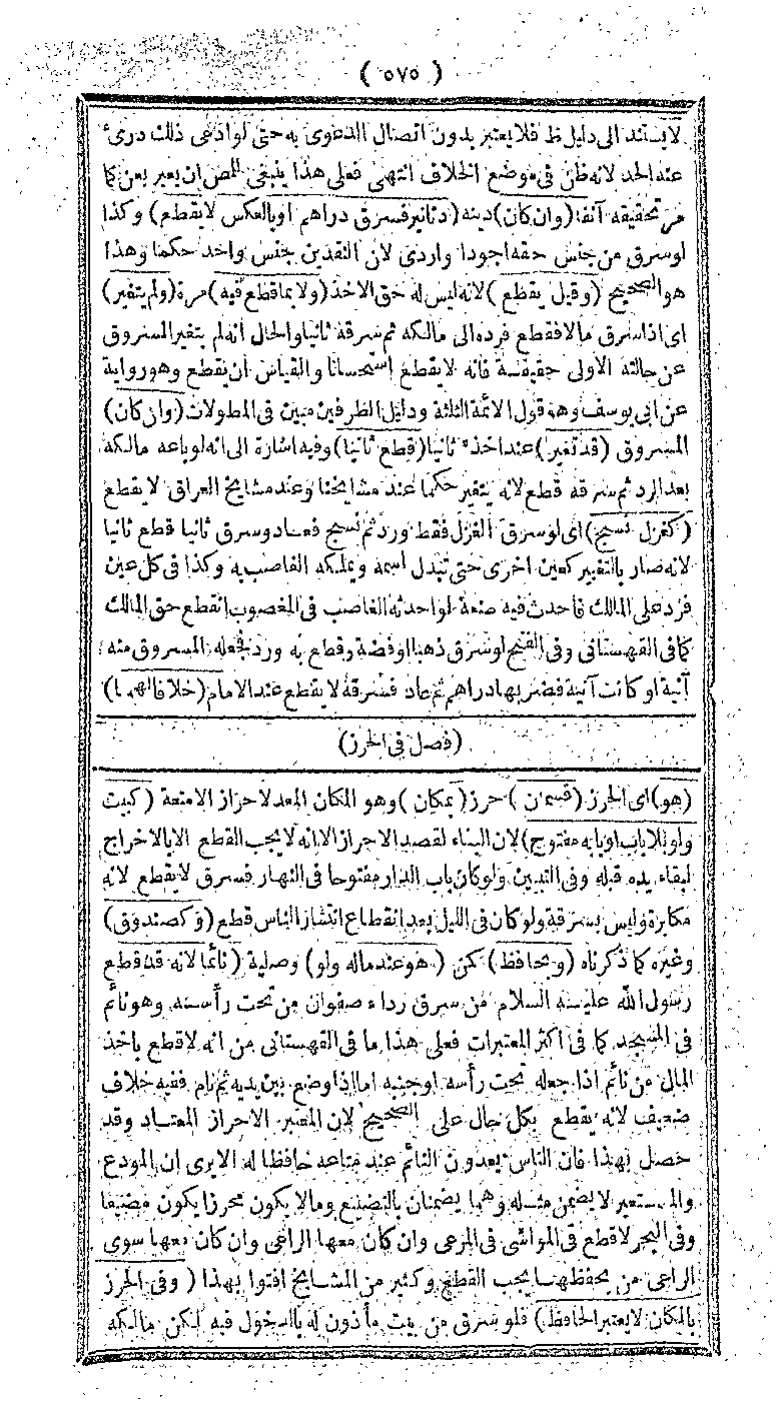 ( ٥٧٥ )
لا يستند الى دليل ظ فلا يعتبر بدون اتصال الدعوى به حتى لو ادعى ذلك درئ
عنه الحد لانه ظن فى موضع الخلاف انتهى فعلى هذا ينبغى للمص ان يعبر بعن كما
مر تحقيقه آنفا (وان كان) دينه (دنانير فسرق دراهم او بالعكس لا يقطع) وكذا
لو سرق من جنس حقه اجودا واردى لان النقدين جنس واحد حكما وهذا
هو الصحيح (وقيل يقطع) لانه ليس له حق الاخذ (ولا بما قطع فيه) مرة (ولم يتغير)
اى اذا سرق مالا فقطع فرده الى مالكه ثم سرقه ثانيا والحال انه لم يتغير المسروق
عن حالته الاولى حقيقة فانه لا يقطع استحسانا والقياس ان يقطع وهو رواية
عن ابى يوسف وهو قول الائمة الثلثة ودليل الطرفين مبين فى المطولات (وان كان)
المسروق (قد تغير) عند اخذه ثانيا (قطع ثانيا) وفيه اشارة الى انه لو باعه مالكه
بعد الرد ثم سرقه قطع لانه يتغير حكما عند مشايخنا وعند مشايخ العراق لا يقطع
(كغزل نسج) اى لو سرق الغزل فقط ورد ثم نسج فعاد وسرق ثانيا قطع ثانيا
لانه صار بالتغيير كعين اخرى حتى تبدل اسمه ويملكه الغاصب به وكذا فى كل عين
فرد على المالك فاحدث فيه صنعة لو احدثه الغاصب فى المغصوب انقطع حق المالك
كما فى القهستانى وفى الفتح لو سرق ذهبا او فضة وقطع به ورد فجعله المسروق منه
آنية او كانت آنية فضربها دراهم ثم عاد فسرقه لا يقطع عند الامام (خلافا لهما)
(فصل فى الحرز)
(هو) اى الحرز (قسمان) حرز (بمكان) وهو المكان المعد لاحراز الامتعة (كبيت
ولو بلا باب او بابه مفتوح) لان البناء لقصد الاحراز الا انه لا يجب القطع الا بالاخراج
لبقاء يده قبله وفى التبيين ولو كان باب الدار مفتوحا فى النهار فسرق لا يقطع لانه
مكابرة وليس بسرقة ولو كان فى الليل بعد انقطاع انتشار الناس قطع (وكصندوق)
وغيره كما ذكرناه (وبحافظ) كمن (هو عند ماله ولو) وصلية (نائما لانه قد قطع
رسول الله عليه السلام من سرق رداء صفوان من تحت رأسه وهو نائم
فى المسجد كما فى اكثر المعتبرات فعلى هذا ما فى القهستانى من انه لا قطع باخذ
المال من نائم اذا جعله تحت رأسه او جنبه اما اذا وضع بين يديه ثم نام ففيه خلاف
ضعيف لانه يقطع بكل حال على الصحيح لان المعتبر الاحراز المعتاد وقد
حصل بهذا فان الناس يعدون النائم عند متاعه حافظا له الا يرى ان المودع
والمستعير لا يضمن مثله وهما يضمنان بالتضييع وما لا يكون محرزا يكون مضيعا
وفى البحر لا قطع فى المواشى فى المرعى وان كان معها الراعى وان كان معها سوى
الراعى من يحفظها يجب القطع وكثير من المشايخ افتوا بهذا (وفى الحرز
بالمكان لا يعتبر الحافظ) فلو سرق من بيت مأذون له بالدخول فيه لكن مالكه